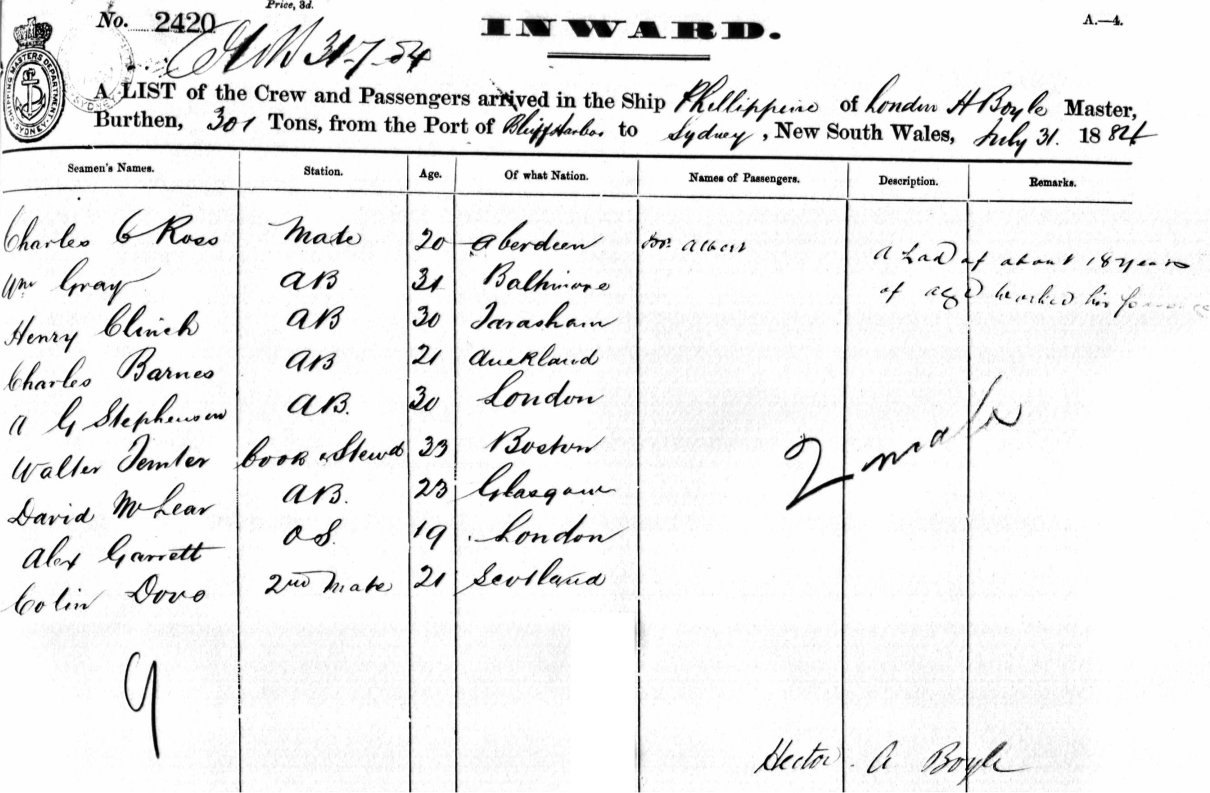 Price, 3d.
No. 2420
INWARD.
A.—4.
31-7-84
SHIPPING MASTERS DEPARTMENT
SYDNEY
SYDNEY
A LIST of the Crew and Passengers arrived in the Ship Phillippine of London H Boyle Master,
Burthen, 301 Tons, from the Port of Bluff Harbor to Sydney, New South Wales, July 31. 1884
Seamen's Names. Station. Age. Of what Nation. Names of Passengers. Description. Remarks.
Charles C Ross Mate 20 Aberdeen Albert a Lad of about 18 years
Wm Gray AB 31 Baltimore of age Worked his
Henry Clinch AB 30
Charles Barnes AB 21 Auckland
A G Stephenson AB. 30 London
Walter Cook & Stewd 33 Boston
David McLear AB. 23 Glasgow
Alex Garrett O S. 19 London
Colin Dove 2nd Mate 21 Scotland
2 male
9
Hector A Boyle